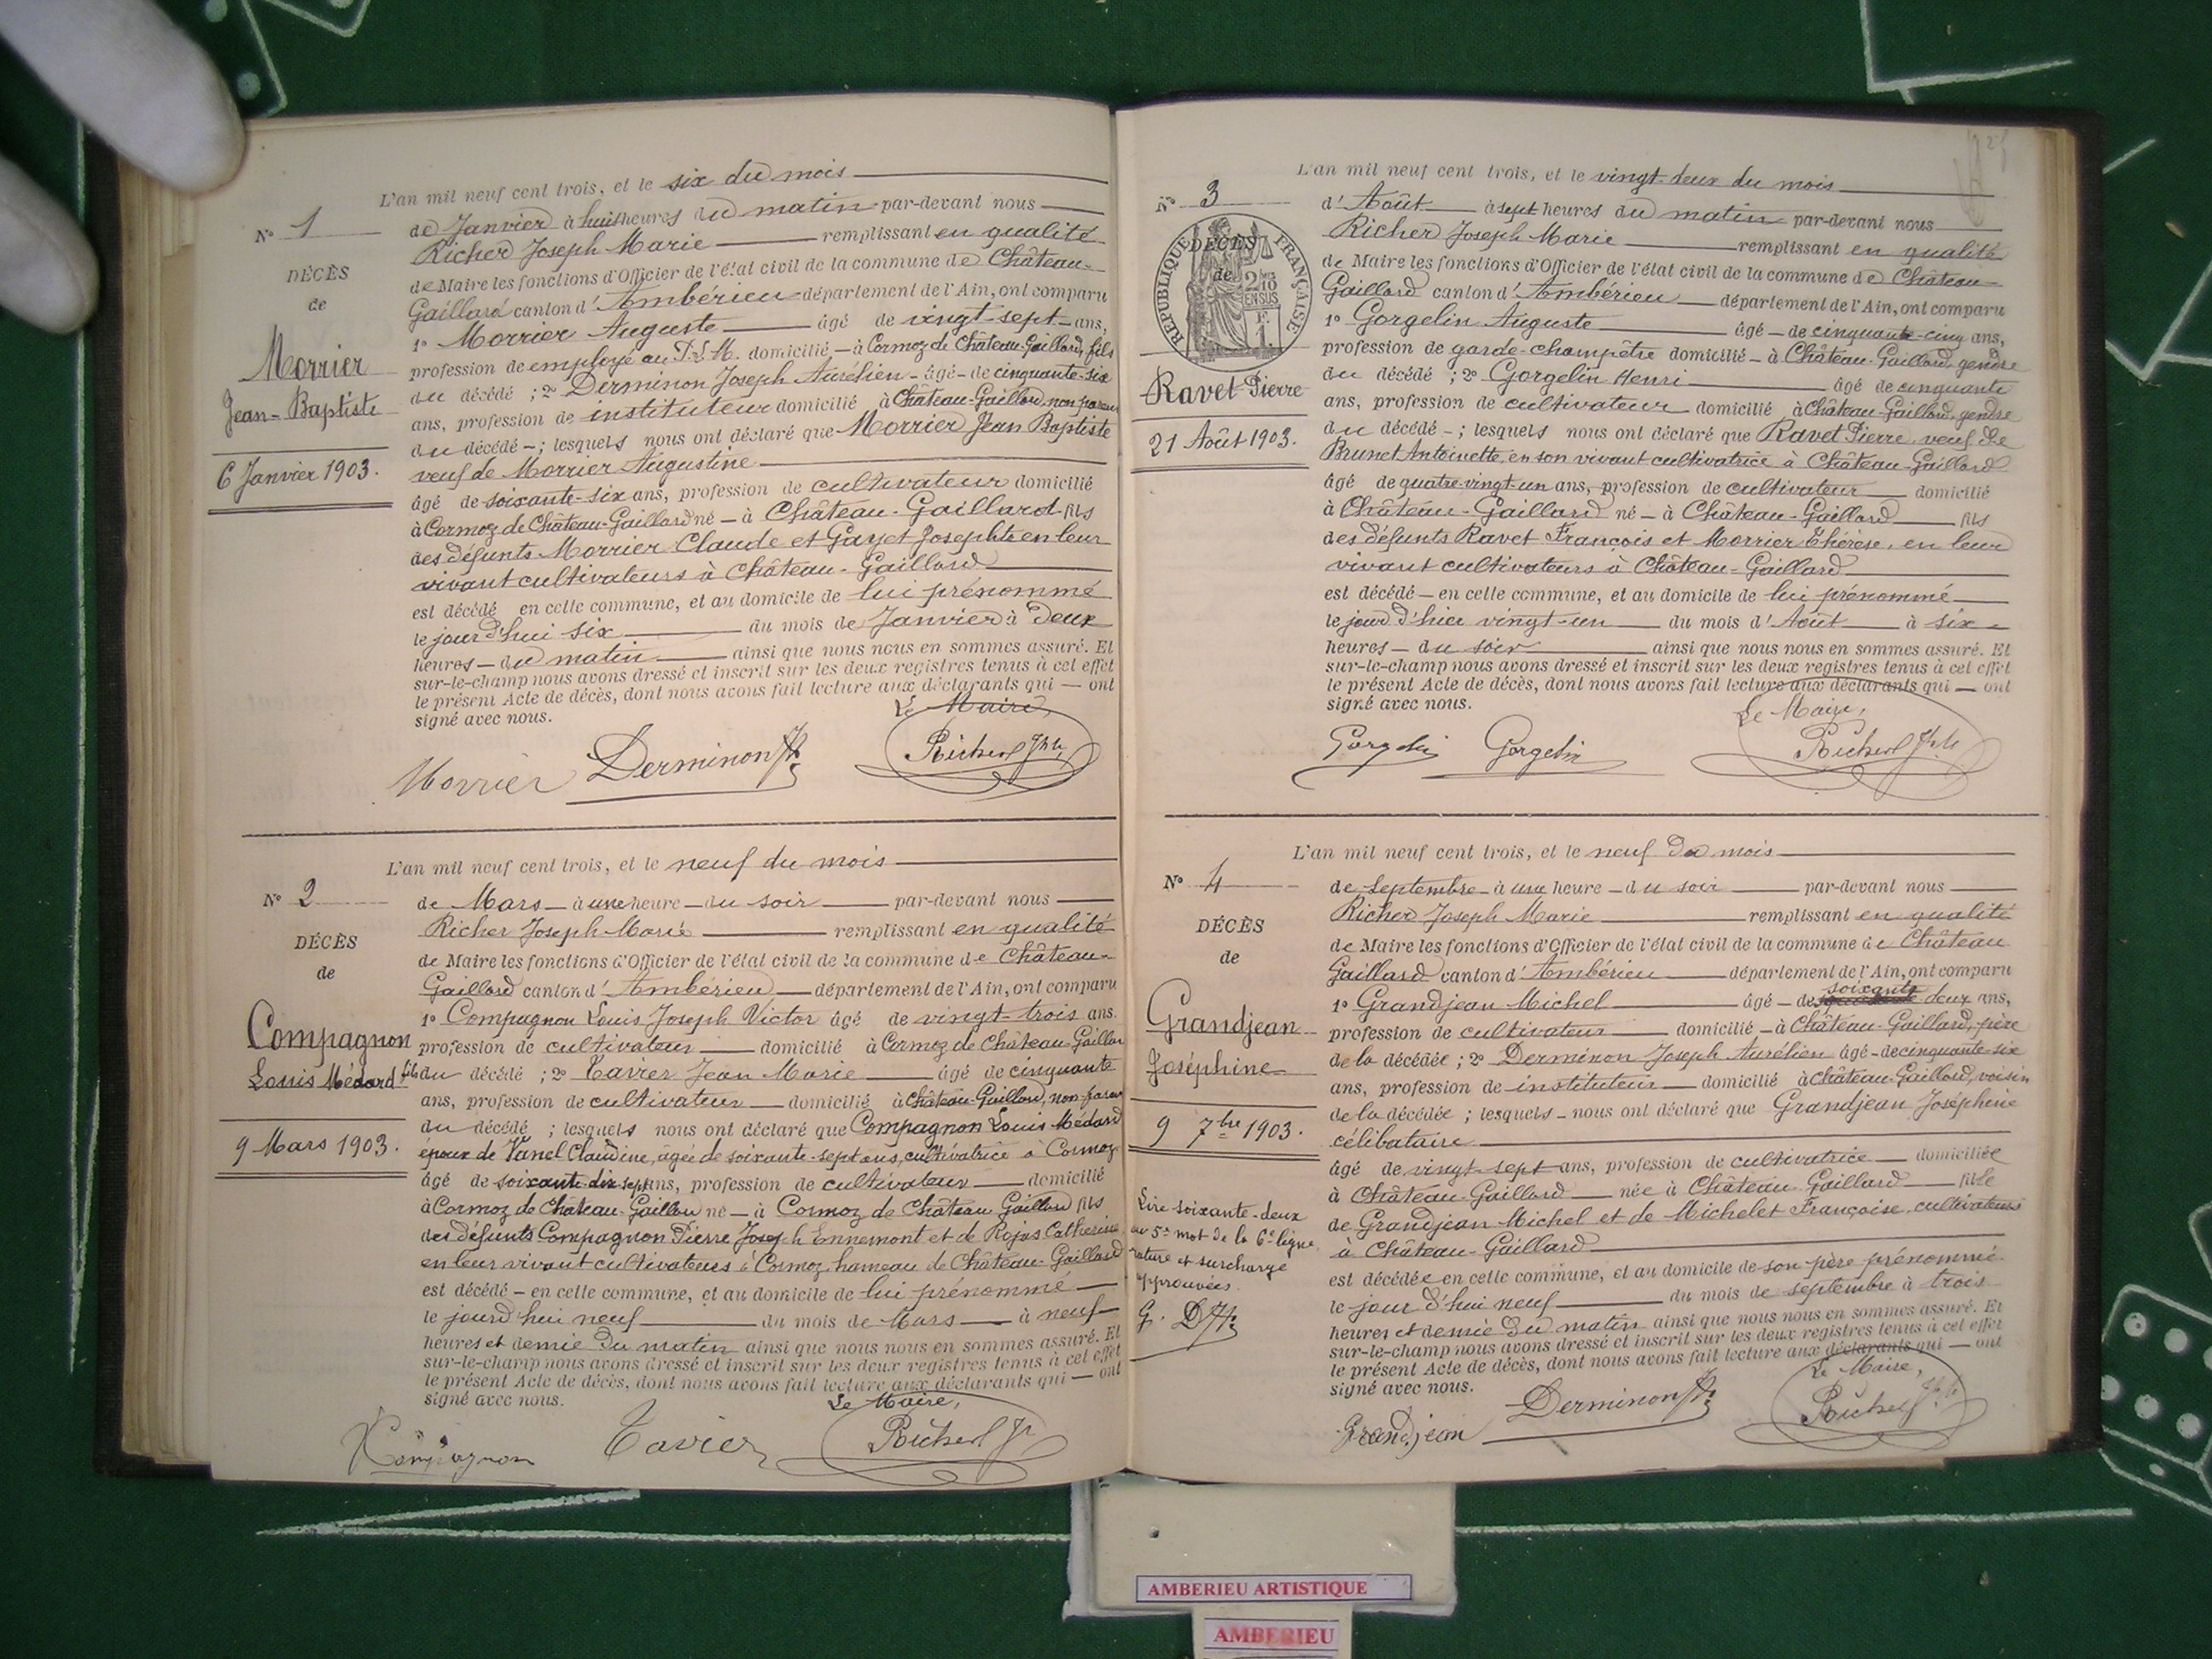 L'an mil neuf cent trois, et le six du mois
N° 1
de Janvier à huit heures du matin par-devant nous
Richer Joseph Marie remplissant en qualité
DÉCÈS
de
de Maire les fonctions d'Officier de l'état civil de la commune de Château-
Gaillard canton d'Ambérieu département de l'Ain, ont comparu
Morrier
Jean-Baptiste
1° Morrier Auguste âgé de vingt-sept ans,
profession de employé au P.L.M. domicilié à Cormoz de Château-Gaillard, fils
du décédé ; 2° Derminon Joseph Aurélien âgé de cinquante-six
ans, profession de instituteur domicilié à Château-Gaillard, non parent
6 Janvier 1903.
du décédé ; lesquels nous ont déclaré que Morrier Jean Baptiste
veuf de Morrier Augustine
âgé de soixante-six ans, profession de cultivateur domicilié
à Cormoz de Château-Gaillard né à Château-Gaillard fils
des défunts Morrier Claude et Gayet Josephte en leur
vivant cultivateurs à Château-Gaillard
est décédé en cette commune, et au domicile de lui prénommé
le jourd'hui six du mois de Janvier à deux
heures du matin ainsi que nous nous en sommes assuré. Et
sur-le-champ nous avons dressé et inscrit sur les deux registres tenus à cet effet
le présent Acte de décès, dont nous avons fait lecture aux déclarants qui ont
signé avec nous.
Le Maire,
Morrier Derminon Richerd
L'an mil neuf cent trois, et le neuf du mois
N° 2
de Mars à une heure du soir par-devant nous
Richer Joseph Marie remplissant en qualité
DÉCÈS
de
de Maire les fonctions d'Officier de l'état civil de la commune de Château-
Gaillard canton d'Ambérieu département de l'Ain, ont comparu
Compagnon
Louis Médard
1° Compagnon Louis Joseph Victor âgé de vingt-trois ans.
profession de cultivateur domicilié à Cormoz de Château Gaillar
fils du décédé ; 2° Tavier Jean Marie âgé de cinquante
ans, profession de cultivateur domicilié à Château-Gaillard, non-paren
9 Mars 1903.
du décédé ; lesquels nous ont déclaré que Compagnon Louis Médard
époux de Vanel Claudine, âgée de soixante-sept ans, cultivatrice à Cormoz
âgé de soixante-dix-sept ans, profession de cultivateur domicilié
à Cormoz de Château-Gaillard né à Cormoz de Château Gaillard fils
des défunts Compagnon Pierre Joseph Ennemont et de Rojas Catherine
en leur vivant cultivateurs à Cormoz, hameau de Château-Gaillard
est décédé en cette commune, et au domicile de lui prénommé
le jourd'hui neuf du mois de Mars à neuf
heures et demie du matin ainsi que nous nous en sommes assuré. Et
sur-le-champ nous avons dressé et inscrit sur les deux registres tenus à cet effet
le présent Acte de décès, dont nous avons fait lecture aux déclarants qui ont
signé avec nous.
Le Maire,
Compagnon Tavier Richerd
L'an mil neuf cent trois, et le vingt-deux du mois
N° 3
d'Août à sept heures du matin par-devant nous
Richer Joseph Marie remplissant en qualité
RÉPUBLIQUE FRANÇAISE
DÉCÈS
de
2/10 EN SUS
F. 1
de Maire les fonctions d'Officier de l'état civil de la commune de Château-
Gaillard canton d'Ambérieu département de l'Ain, ont comparu
1° Gorgelin Auguste âgé de cinquante-cinq ans,
profession de garde-champêtre domicilié à Château-Gaillard, gendre
Ravet Pierre
du décédé ; 2° Gorgelin Henri âgé de cinquante
ans, profession de cultivateur domicilié à Château-Gaillard, gendre
21 Août 1903.
du décédé ; lesquels nous ont déclaré que Ravet Pierre, veuf de
Brunet Antoinette, en son vivant cultivatrice à Château-Gaillard
âgé de quatre-vingt-un ans, profession de cultivateur domicilié
à Château-Gaillard né à Château-Gaillard fils
des défunts Ravet François et Morrier Thérèse, en leur
vivant cultivateurs à Château-Gaillard
est décédé en cette commune, et au domicile de lui prénommé
le jour d'hier vingt-un du mois d'Août à six
heures du soir ainsi que nous nous en sommes assuré. Et
sur-le-champ nous avons dressé et inscrit sur les deux registres tenus à cet effet
le présent Acte de décès, dont nous avons fait lecture aux déclarants qui ont
signé avec nous.
Le Maire,
Gorgelin Gorgelin Richerd
L'an mil neuf cent trois, et le neuf du mois
N° 4
de Septembre à une heure du soir par-devant nous
Richer Joseph Marie remplissant en qualité
DÉCÈS
de
de Maire les fonctions d'Officier de l'état civil de la commune de Château
Gaillard canton d'Ambérieu département de l'Ain, ont comparu
Grandjean
Joséphine
1° Grandjean Michel âgé de soixante deux ans,
profession de cultivateur domicilié à Château-Gaillard, père
de la décédée ; 2° Derminon Joseph Aurélien âgé de cinquante-six
ans, profession de instituteur domicilié à Château-Gaillard, voisin
9 7bre 1903.
de la décédée ; lesquels nous ont déclaré que Grandjean Joséphine
célibataire
âgé de vingt-sept ans, profession de cultivatrice domiciliée
à Château-Gaillard née à Château Gaillard fille
de Grandjean Michel et de Michelet Françoise, cultivateurs
à Château-Gaillard
Lire soixante-deux
au 5e mot de la 6e ligne,
rature et surcharge
approuvées.
G.
est décédée en cette commune, et au domicile de son père prénommé
le jour d'hui neuf du mois de septembre à trois
heures et demie du matin ainsi que nous nous en sommes assuré. Et
sur-le-champ nous avons dressé et inscrit sur les deux registres tenus à cet effet
le présent Acte de décès, dont nous avons fait lecture aux déclarants qui ont
signé avec nous.
Le Maire,
Grandjean Derminon Richerd
AMBERIEU ARTISTIQUE
AMBERIEU